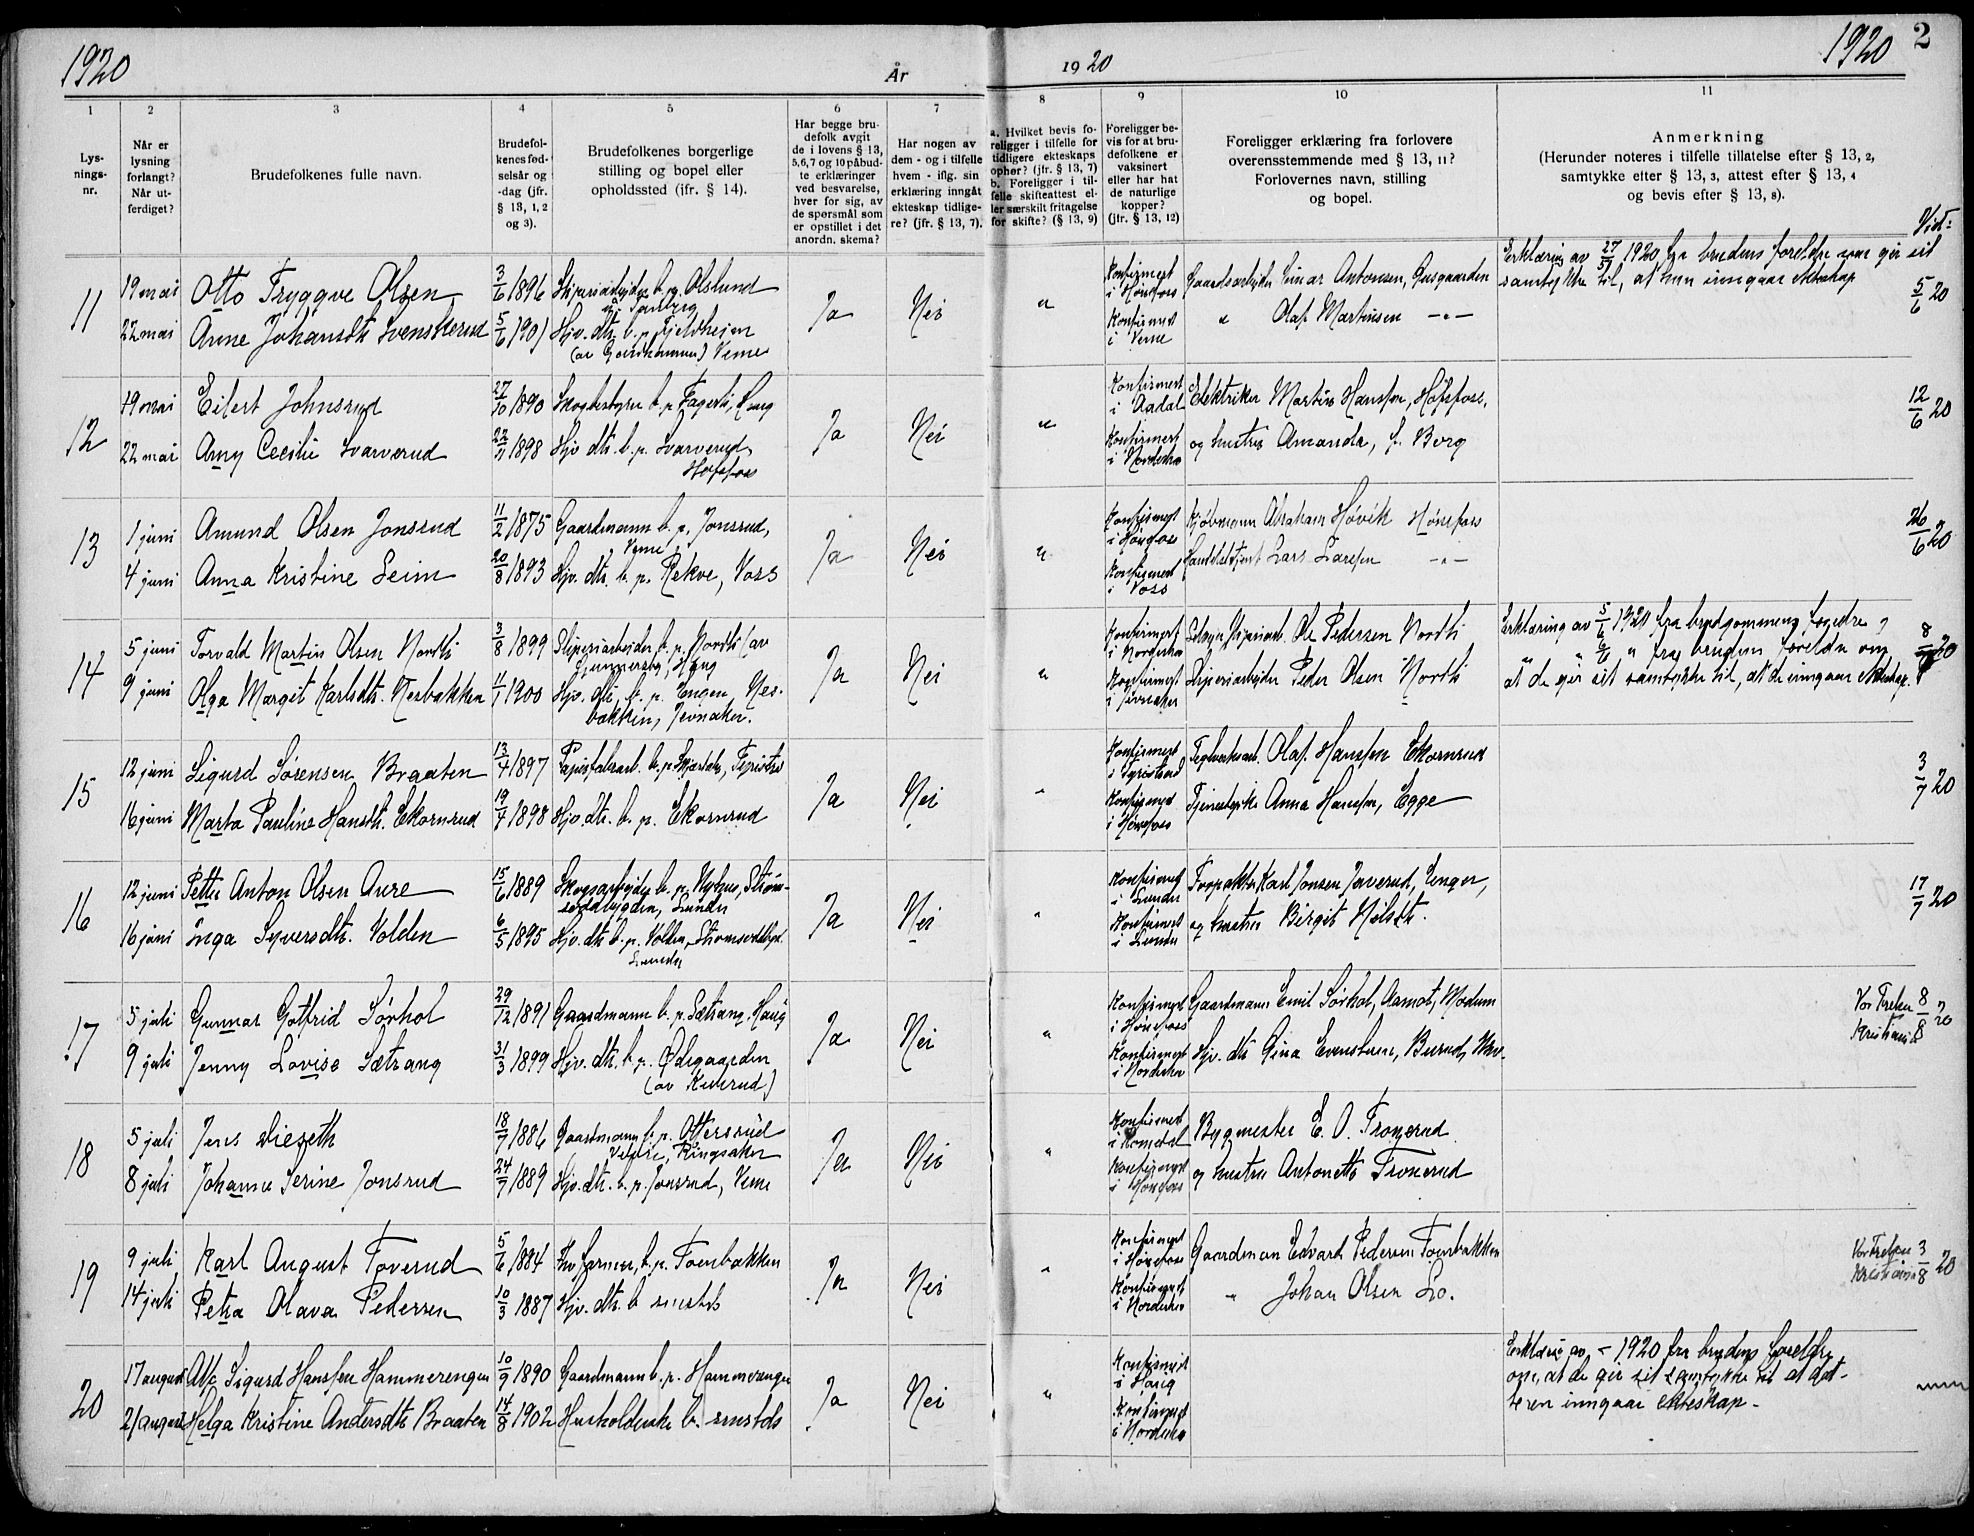 1920
År
1920
1920
2
1
2
3
4
5
6
7
8
9
10
11
Lys-
nings-
nr.
Når er
lysning
forlangt?
Når ut-
ferdiget?
Brudefolkenes fulle navn.
Brudefol-
kenes fød-
selsår og
-dag (jfr.
§ 13, 1, 2
og 3).
Brudefolkenes borgerlige
stilling og bopel eller
opholdssted (jfr. § 14).
Har begge bru-
defolk avgit
de i lovens § 13,
5,6,7 og 10 påbud-
te erklæringer
ved besvarelse,
hver for sig, av
de spørsmål som
er opstillet i det
anordn. skema?
Har nogen av
dem - og i tilfelle
hvem - iflg. sin
erklæring inngåt
ekteskap tidlige-
re? (jfr. § 13, 7).
a. Hvilket bevis fo-
religger i tilfelle for
tidligere ekteskaps
ophør? (jfr. § 13, 7)
b. Foreligger i til-
felle skifteattest el-
ler særskilt fritagelse
for skifte? (§ 13, 9)
Foreligger be-
vis for at bru-
defolkene er
vaksinert
eller har hat
de naturlige
kopper?
(jfr. § 13, 12)
Foreligger erklæring fra forlovere
overensstemmende med § 13, 11?
Forlovernes navn, stilling
og bopel.
Anmerkning
(Herunder noteres i tilfelle tillatelse efter § 13, 2,
samtykke efter § 13, 3, attest efter § 13, 4
og bevis efter § 13, 8).
Vist:
11
19 mai Otto Tryggve Olsen 3/6 1896 b. p. Olslund
22 mai Anne Johansdtr. Svenskerud 5/6 1901 Hjv. dtr. b. p. Fjeldheim
Veme
Ja Nei "
Konfirmert i Hønefoss
Konfirmert i Veme
Gaardsarbeider Einar Antonsen,
" Olaf Martinsen —"—
Erklæring av 1920 fra brudens foreldre om gir sit
samtykke til, at hun inngaar ekteskap
5/6 20
12
19 mai Eilert Johnsrud 27/10 1890 Skogbestyrer b. p. Fagerli, Haug
22 mai Amy Cecilie Svarverud 1898 Hjv. dtr. b. p. Svarverud,
Hofsfoss
Ja Nei "
Konfirmert i Aadal
Konfirmert i Norderhov
Elektriker Martin Hanssen, Hofsfoss,
og hustru Amanda, f. Berg
12/6 20
13
1 juni Amund Olsen Jonsrud 11/2 1875 Gaardmann b. p. Jonsrud,
Veme
4 juni Anna Kristine Leim 20/8 1893 Hjv. dtr. b. p. Rekve, Voss
Ja Nei "
Konfirmert i Hønefoss
Konfirmert i Voss
Kjøbmann Abraham Høvik Hønefoss
Lars Larssen —"—
26/6 20
14
5 juni Torvald Martin Olsen Nordli 3/8 1899 Sliperiarbeider b. p. Nordli (av
Gunnersby, Haug
9 juni Olga Margit Karlsdtr. Nesbakken 1900 Hjv. dtr. b. p. Nes-
bakken, Jevnaker.
Ja Nei "
Konfirmert i Norderhov
Konfirmert i Jevnaker
Ole Pedersen Nordli
Sliperiarbeider Peder Olsen Nordli
Erklæring av 5/6 1920 fra brudgommens foreldre og
" " 9/6 " fra brudens foreldre om,
at de gir sit samtykke til, at de inngaar ekteskap.
20
15
12 juni Sigurd Sørensen Braaten 13/4 1897 Papirfabrarb. b. p.
16 juni Marta Pauline Hansdtr. Ekornrud 19/4 1898 Hjv. dtr. b. p. Ekornrud
Ja Nei
Konfirmert i Tyristrand
Konfirmert i Hønefoss
Teglverksarb. Olaf Hanssen Ekornrud
Anna Hanssen, Egge
3/7 20
16
12 juni Petter Anton Olsen Aure 15/6 1889 Skogsarbeider b. p. Nyhus, Strøm-
soddbygden, Lunder
16 juni Inga Syversdtr. Volden 6/5 1895 Hjv. dtr. b. p. Volden, Strømsoddbygd.
Lunder
Ja Nei "
Konfirmert i Lunder
Konfirmert i Lunder
Forpakter Karl Jonsen Javerud,
og hustru Birgit
17/7 20
17
5 juli Gunnar Gotfrid Sørhol 29/12 1891 Gaardmann b. p. Sætrang, Haug
9 juli Jenny Lovise Sætrang 31/3 1899 Hjv. dtr. b. p. Ødegaarden
Ja Nei "
Konfirmert i Hønefoss
Konfirmert i Norderhov
Gaardmann Emil Sørhol, Aamot, Modum
Hjv. dtr. Gina Evensbraaten,
Vor Frelser
Kristiania 8/8 20
18
5 juli Jens 18/7 1886 Gaardmann b. p. Ottersrud
Ringsaker
8 juli Johanne Serine Jonsrud 24/7 1889 Hjv. dtr. b. p. Jonsrud, Veme
Ja Nei "
Konfirmert i Romedal
Konfirmert i Hønefoss
Bygmester E. O. Tronerud
og hustru Antonette Tronerud
19
9 juli Karl August Toverud 5/6 1884 farmer, b. p. Toenbakken
14 juli Petra Olava Pedersen 10/3 1887 Hjv. dtr. b. smstds
Ja Nei
Konfirmert i Hønefoss
Konfirmert i Norderhov
Gaardman Edvard Pedersen Toenbakken
" Johan Olsen Lo.
Vor Frelser
Kristiania 3/8 20
20
17 august Alf Sigurd Hanssen Hammerengen 10/9 1890 Gaardmann b. p. Hammerengen
21 august Helga Kristine Andersdtr. Braaten 14/8 1902 Husholderske b. smstds
Ja Nei "
Konfirmert i Haug
Konfirmert i Norderhov
Erklæring av – 1920 fra brudens foreldre
om, at de gir sit samtykke til at dat-
teren inngaar ekteskap.